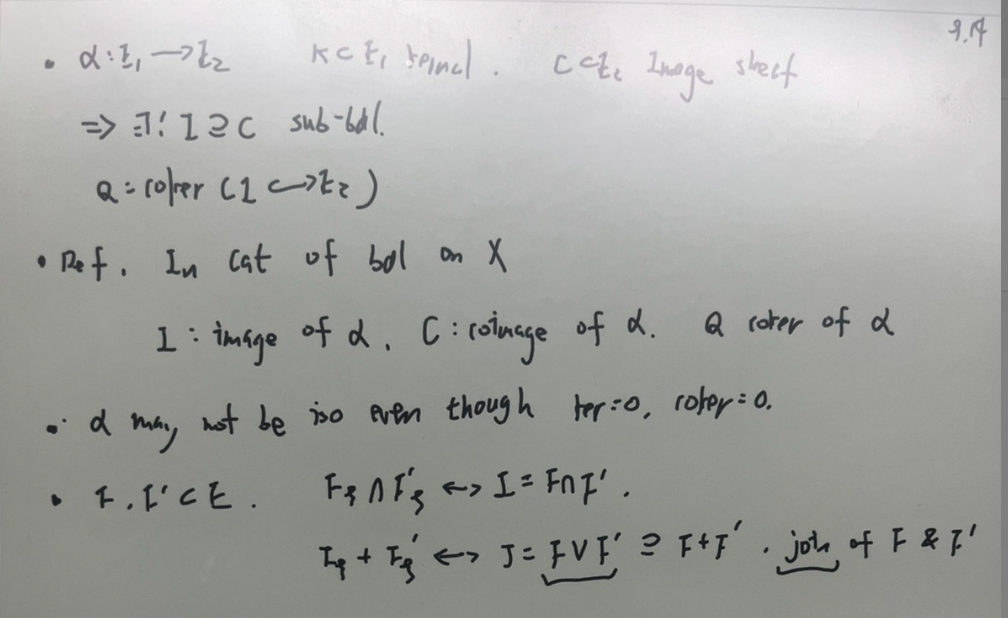 9.17
• α: E₁ → E₂ K ⊂ E₁ kernel. C ⊂ E₂ Image sheaf
⇒ ∃! I ⊇ C sub-bdl.
Q = coker (I ↪ E₂)
• Def. In cat of bdl on X
I : image of α, C : coimage of α. Q coker of α
• α may not be iso even though ker=0, coker=0.
• F, F' ⊂ E. F_ξ ∩ F'_ξ ↔ I = F∩F'.
F_ξ + F_ξ' ↔ J = F∨F' ⊇ F+F'. join of F & F'